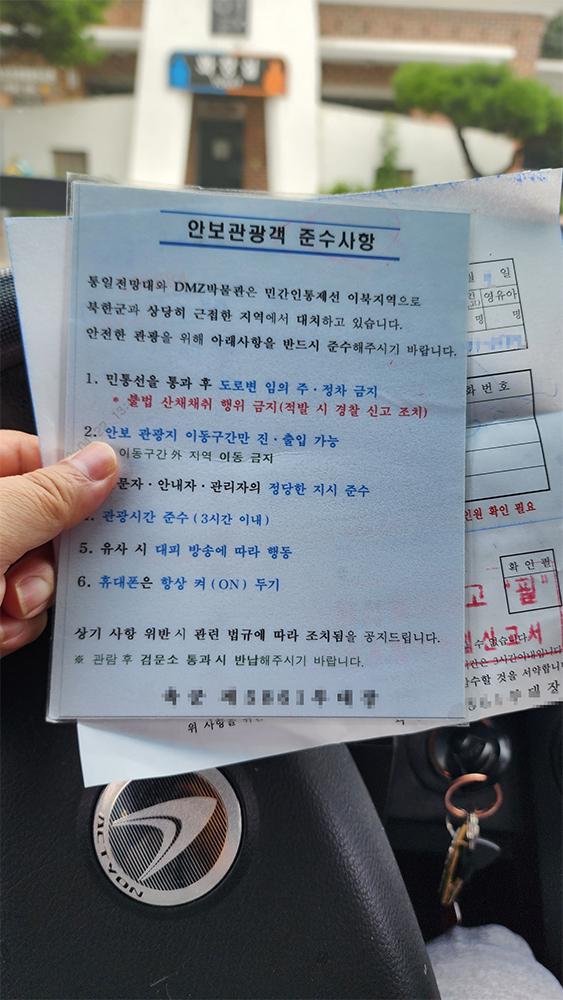 안보관광객 준수사항
통일전망대와 DMZ박물관은 민간인통제선 이북지역으로
북한군과 상당히 근접한 지역에서 대치하고 있습니다.
안전한 관광을 위해 아래사항을 반드시 준수해주시기 바랍니다.
1. 민통선을 통과 후 도로변 임의 주·정차 금지
* 불법 산채채취 행위 금지(적발 시 경찰 신고 조치)
2. 안보 관광지 이동구간만 진·출입 가능
이동구간 外 지역 이동 금지
문자·안내자·관리자의 정당한 지시 준수
관광시간 준수 (3시간 이내)
5. 유사 시 대피 방송에 따라 행동
6. 휴대폰은 항상 켜(ON) 두기
상기 사항 위반 시 관련 법규에 따라 조치됨을 공지드립니다.
※ 관람 후 검문소 통과시 반납해주시기 바랍니다.
일
영유아
명 명
화 번 호
인원 확인 필요
확 인 관
고 필
신고서
없습니다.
간은 3시간이내입니다
수할 것을 서약합니다
부 대 장
위 사항을
ACTYON